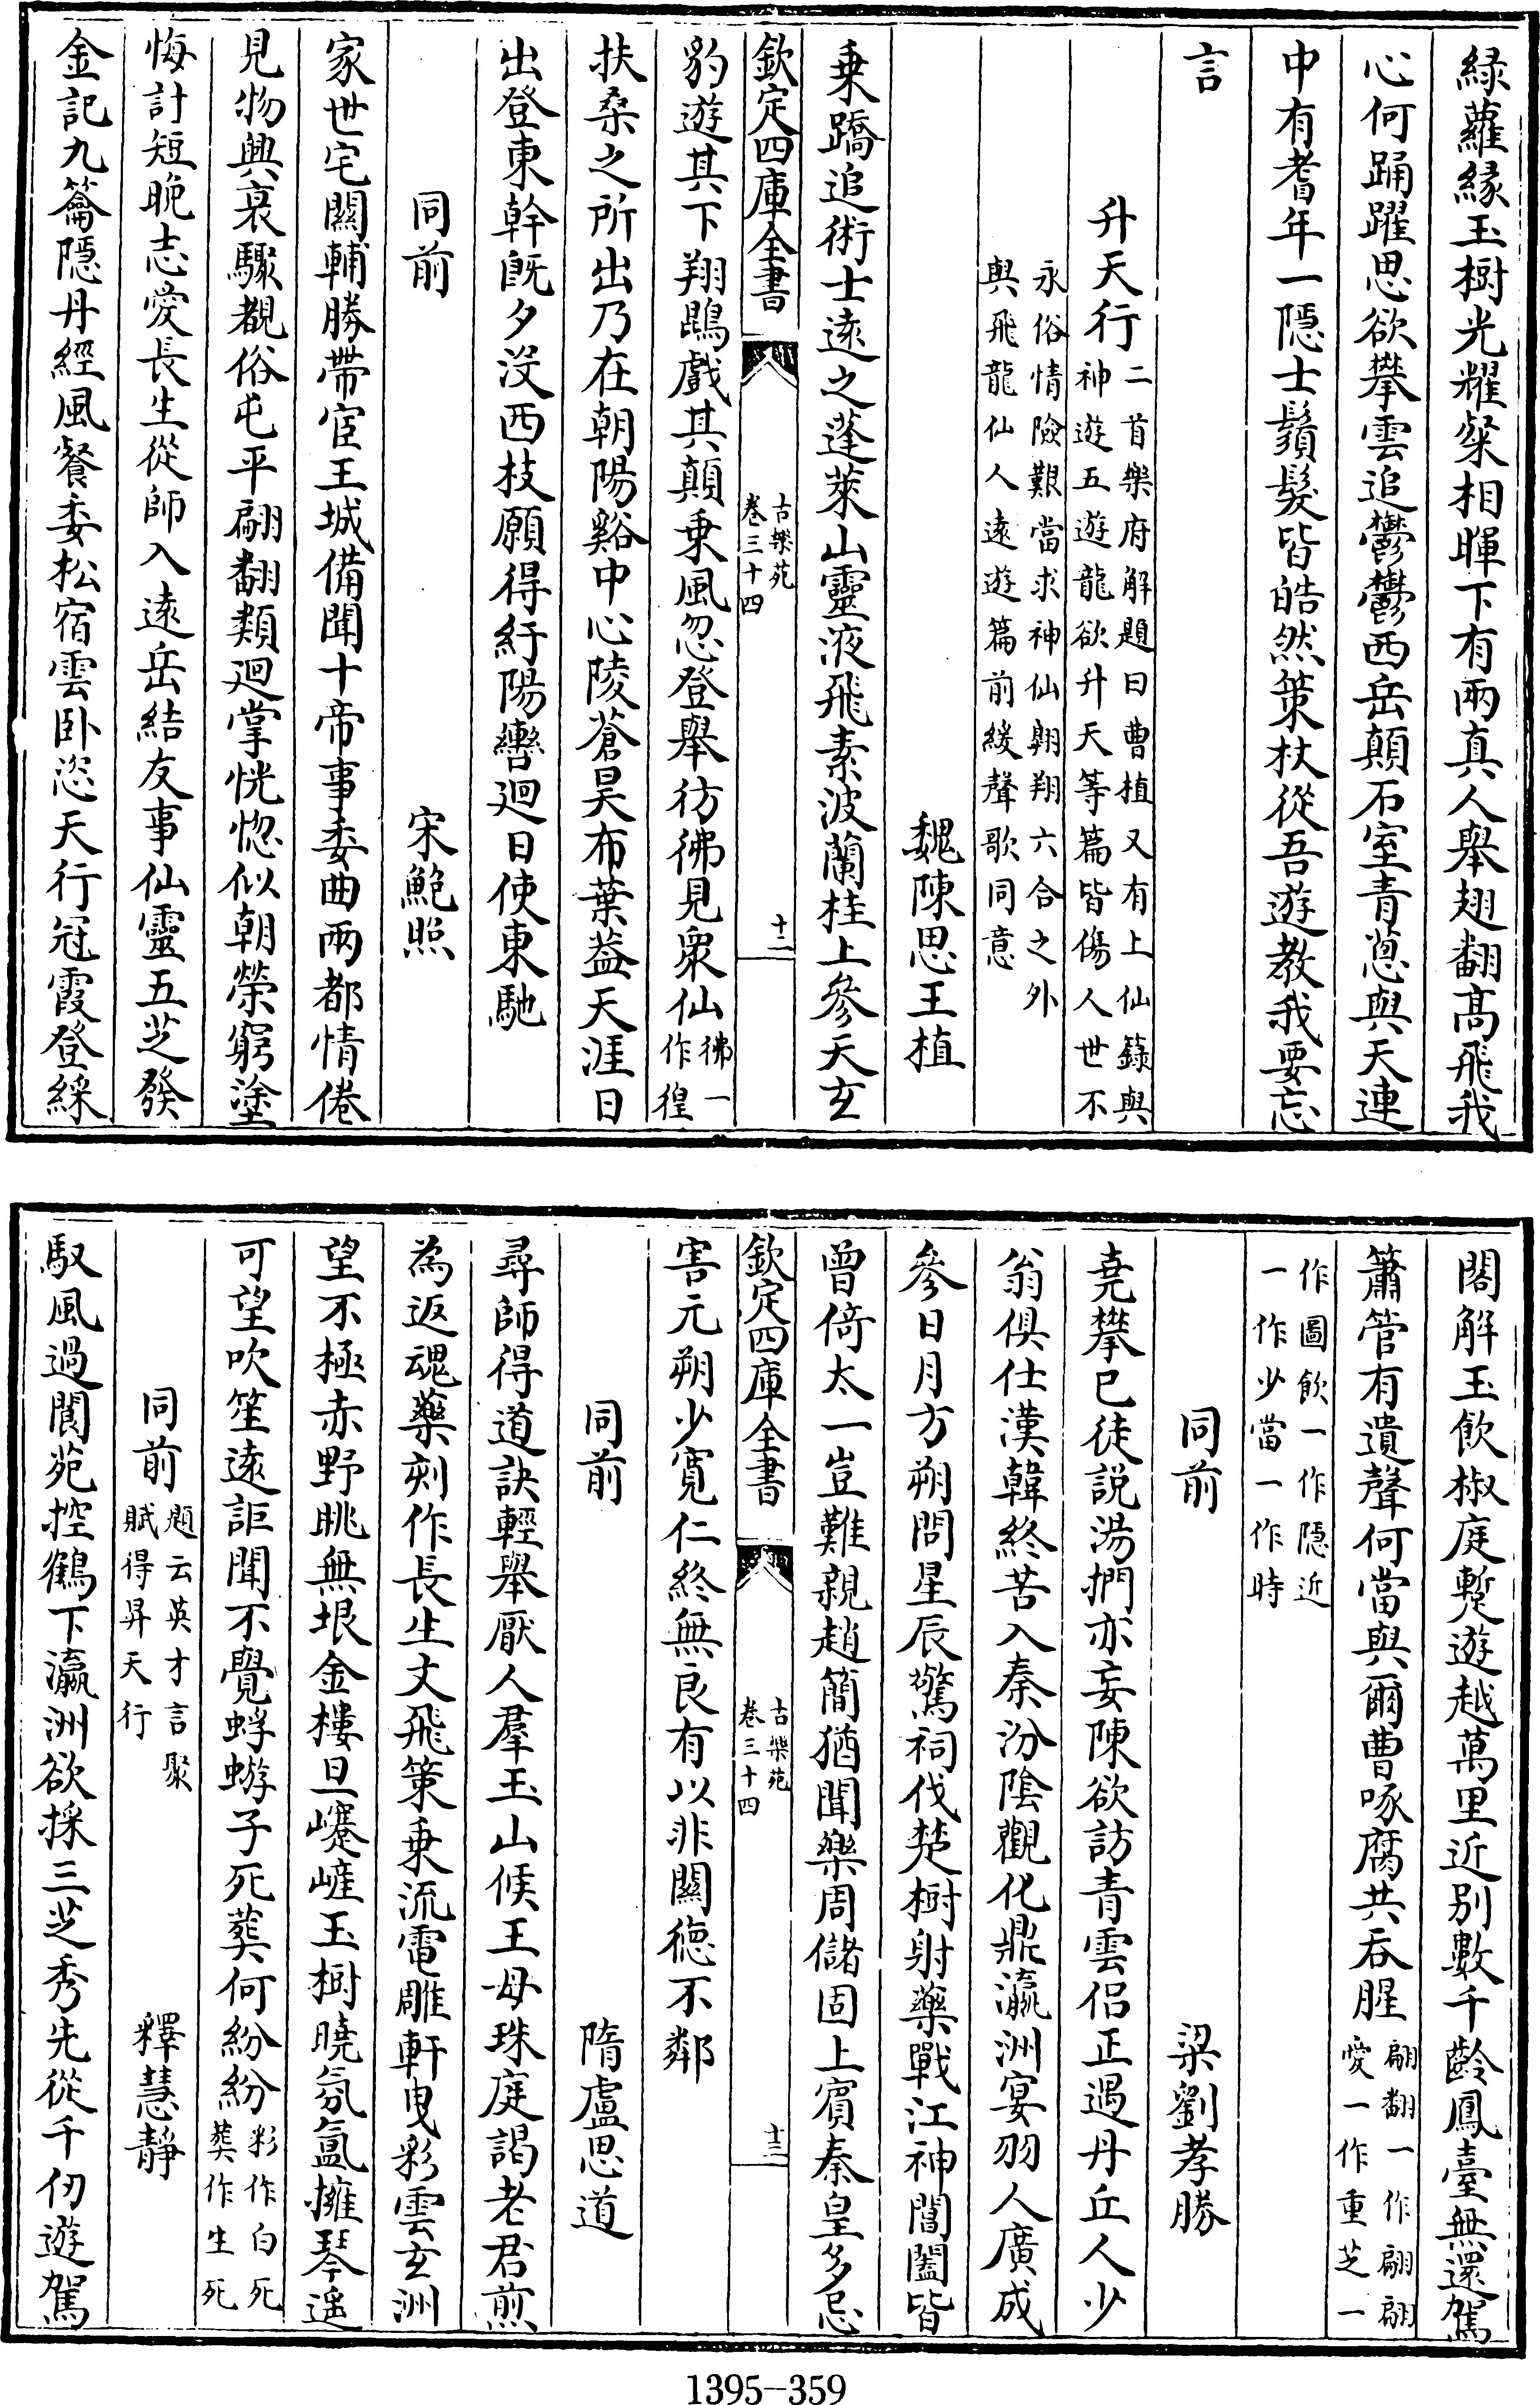 緑蘿縁玉樹光耀粲相暉下有兩真人舉翅翻髙飛我
心何踊躍思欲攀雲追鬱鬱西岳顛石室青葱與天連
中有耆年一隠士鬚髮皆皓然策杖從吾遊教我要忘
言
升天行二首樂府解題曰曹植又有上仙籙與
神遊五遊龍欲升天等篇皆傷人世不
永俗情險艱當求神仙翺翔六合之外
與飛龍仙人逺遊篇前緩聲歌同意
魏陳思王植
乗蹻追術士逺之蓬萊山靈液飛素波蘭桂上參天玄
欽定四庫全書
古樂苑
卷三十四
十二
豹遊其下翔鵾戲其顛乗風忽登舉彷彿見衆仙彿一
作徨
扶桑之所出乃在朝陽谿中心陵蒼昊布葉葢天涯日
出登東幹既夕没西枝願得紆陽轡迴日使東馳
同前 宋鮑照
家世宅關輔勝帶宦王城備聞十帝事委曲兩都情倦
見物興衰驟覩俗屯平翩翻類迴掌恍惚似朝榮窮塗
悔計短晚志愛長生從師入逺岳結友事仙靈五芝發
金記九籥隠丹經風餐委松宿雲卧恣天行冠霞登綵
閣解玉飲椒庭蹔遊越萬里近别數千齡鳳臺無還駕
簫管有遺聲何當與爾曹啄腐共吞腥翩翻一作翩翩
愛一作重芝一
作圖飲一作隠近
一作少當一作時
同前 梁劉孝勝
堯攀已徒説湯捫亦妄陳欲訪青雲侣正遇丹丘人少
翁俱仕漢韓終苦入秦汾陰觀化鼎瀛洲宴羽人廣成
參日月方朔問星辰驚祠伐楚樹射藥戰江神閶闔皆
曾倚太一豈難親趙簡猶聞樂周儲固上賔秦皇多忌
欽定四庫全書
古樂苑
卷三十四
十三
害元朔少寛仁終無良有以非關徳不鄰
同前 隋盧思道
尋師得道訣輕舉厭人羣玉山候王母珠庭謁老君煎
為返魂藥刻作長生文飛策乗流電雕軒曳彩雲玄洲
望不極赤野眺無垠金樓旦巘嵼玉樹曉氛氲擁琴遥
可望吹笙逺詎聞不覺蜉蝣子死葬何紛紛彩作白死
葬作生死
同前題云英才言聚
賦得昇天行
釋慧静
馭風過閬苑控鶴下瀛洲欲採三芝秀先從千仞遊駕
1395-359